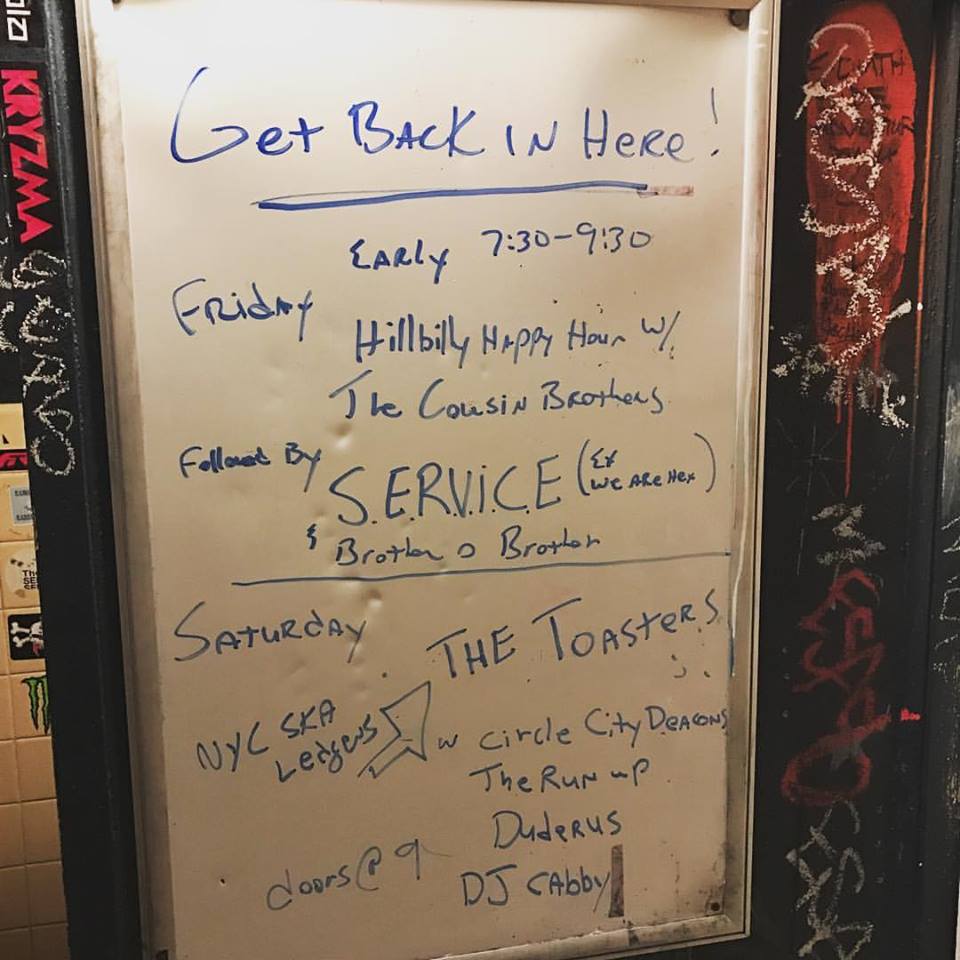 Get BACK IN HeRe!
EARLY 7:30-9:30
FRidAY
Hillbilly HAPPY Hour w/
The Cousin BRothers
Followed By
S.E.R.V.i.C.E (Ex We ARe Hex)
& Brother o Brother
SATURdAY
THE ToASTERS
NYC SKA
Ledgens
w Circle City DeAcons
The Run up
Duderus
doors@9
DJ CAbby
KRYZMA